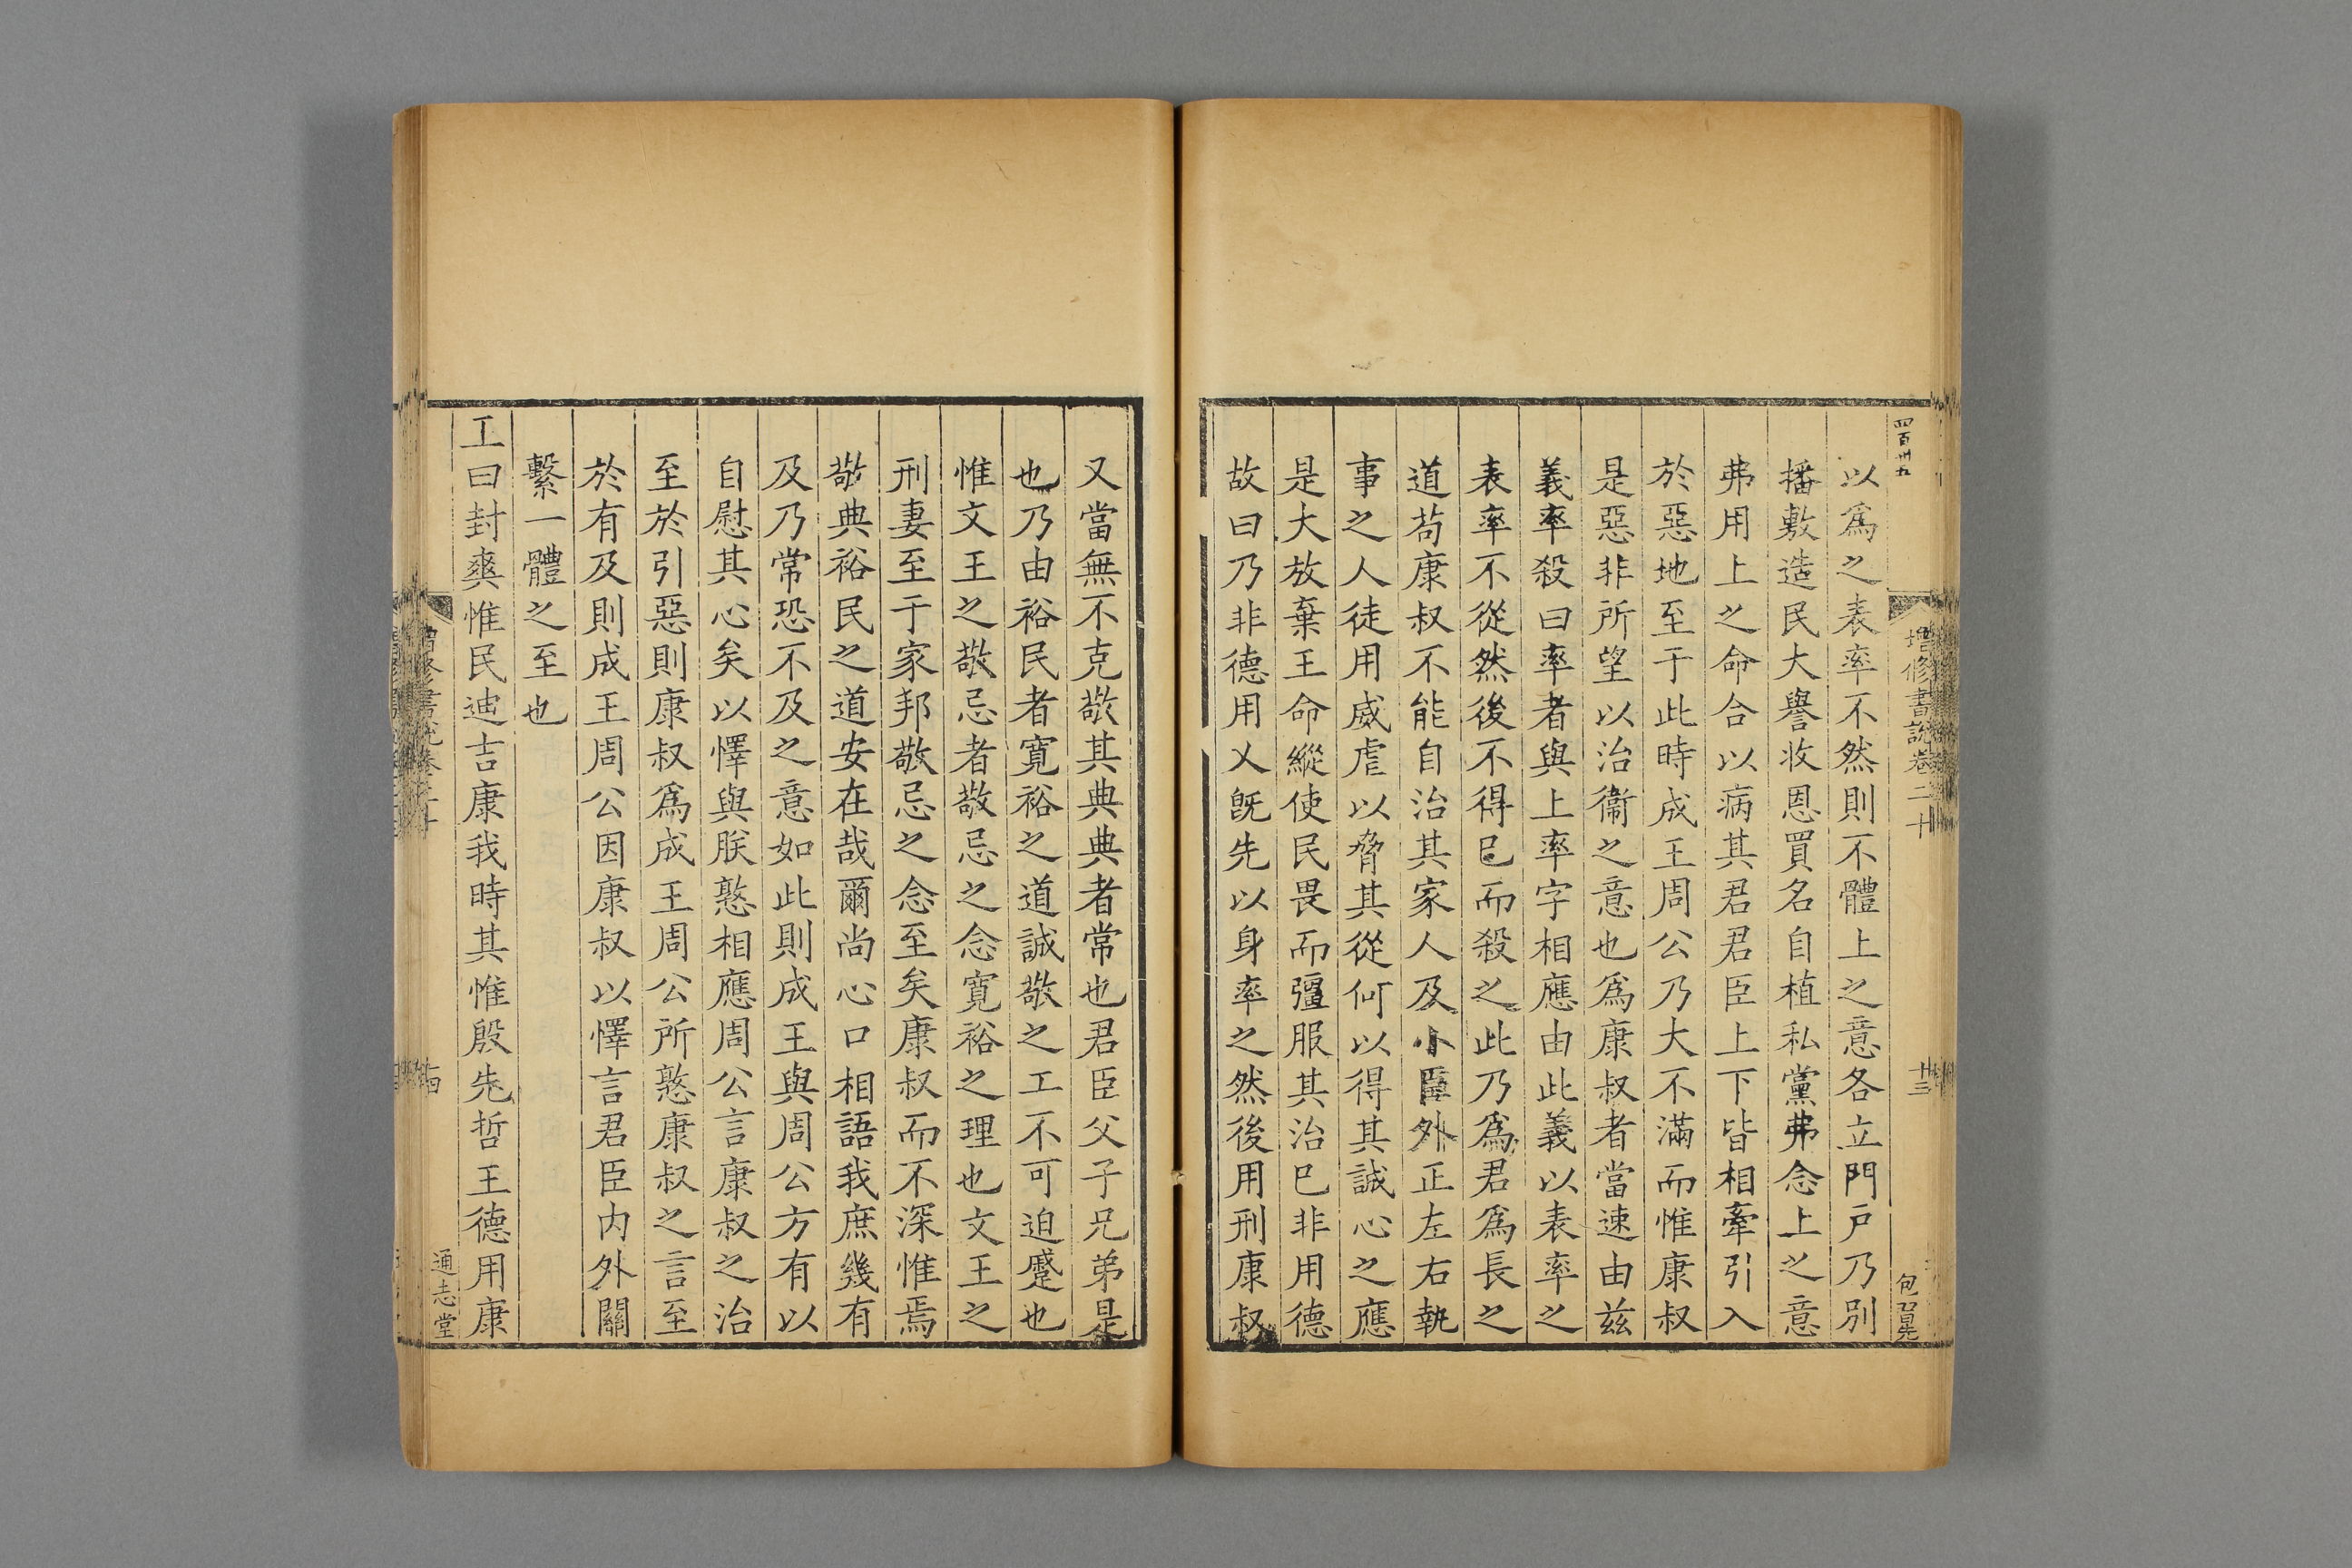 四百卅九
增修書說卷二十
十三
包習先
以爲之表率不然則不體上之意各立門戸乃別
播敷造民大譽收恩買名自植私黨弗念上之意
弗用上之命合以病其君君臣上下皆相牽引入
於惡地至于此時成王周公乃大不滿而惟康叔
是惡非所望以治衞之意也爲康叔者當速由茲
義率殺曰率者與上率字相應由此義以表率之
表率不從然後不得巳而殺之此乃爲君爲長之
道苟康叔不能自治其家人及小臣外正左右執
事之人徒用威虐以脅其從何以得其誠心之應
是大放棄王命縱使民畏而彊服其治巳非用德
故曰乃非德用乂旣先以身率之然後用刑康叔
又當無不克敬其典典者常也君臣父子兄弟是
也乃由裕民者寬裕之道誠敬之工不可迫蹙也
惟文王之敬忌者敬忌之念寬裕之理也文王之
刑妻至于家邦敬忌之念至矣康叔而不深惟焉
敬典裕民之道安在哉爾尚心口相語我庶幾有
及乃常恐不及之意如此則成王與周公方有以
自慰其心矣以懌與朕憝相應周公言康叔之治
至於引惡則康叔爲成王周公所憝康叔之言至
於有及則成王周公因康叔以懌言君臣内外關
繫一體之至也
王曰封爽惟民迪吉康我時其惟殷先哲王德用康
十四
通志堂